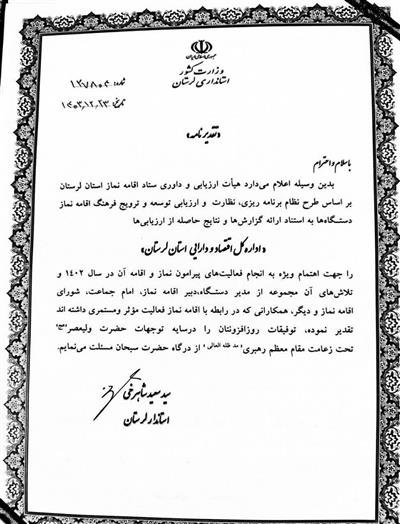 جمهوری اسلامی ایران
وزارت کشور
استانداری لرستان
شماره: ۱۲۷۸۰۴
تاریخ: ۱۴۰۳,۱۲,۲۳
«تقدیرنامه»
با سلام و احترام
بدین وسیله اعلام می‌دارد هیأت ارزیابی و داوری ستاد اقامه نماز استان لرستان
بر اساس طرح نظام برنامه ریزی، نظارت و ارزیابی توسعه و ترویج فرهنگ اقامه نماز
دستگاه‌ها به استناد ارائه گزارش‌ها و نتایج حاصله از ارزیابی‌ها
«اداره کل اقتصاد و دارایی استان لرستان»
را جهت اهتمام ویژه به انجام فعالیت‌های پیرامون نماز و اقامه آن در سال ۱۴۰۲ و
تلاش‌های آن مجموعه از مدیر دستگاه،دبیر اقامه نماز، امام جماعت، شورای
اقامه نماز و دیگر، همکارانی که در رابطه با اقامه نماز فعالیت مؤثر ومستمری داشته اند
تقدیر نموده، توفیقات روزافزونتان را درسایه توجهات حضرت ولیعصر"عج"
تحت زعامت مقام معظم رهبری"مد ظله العالی" از درگاه حضرت سبحان مسئلت می‌نمایم.
سید سعید شاهرخی
استاندار لرستان